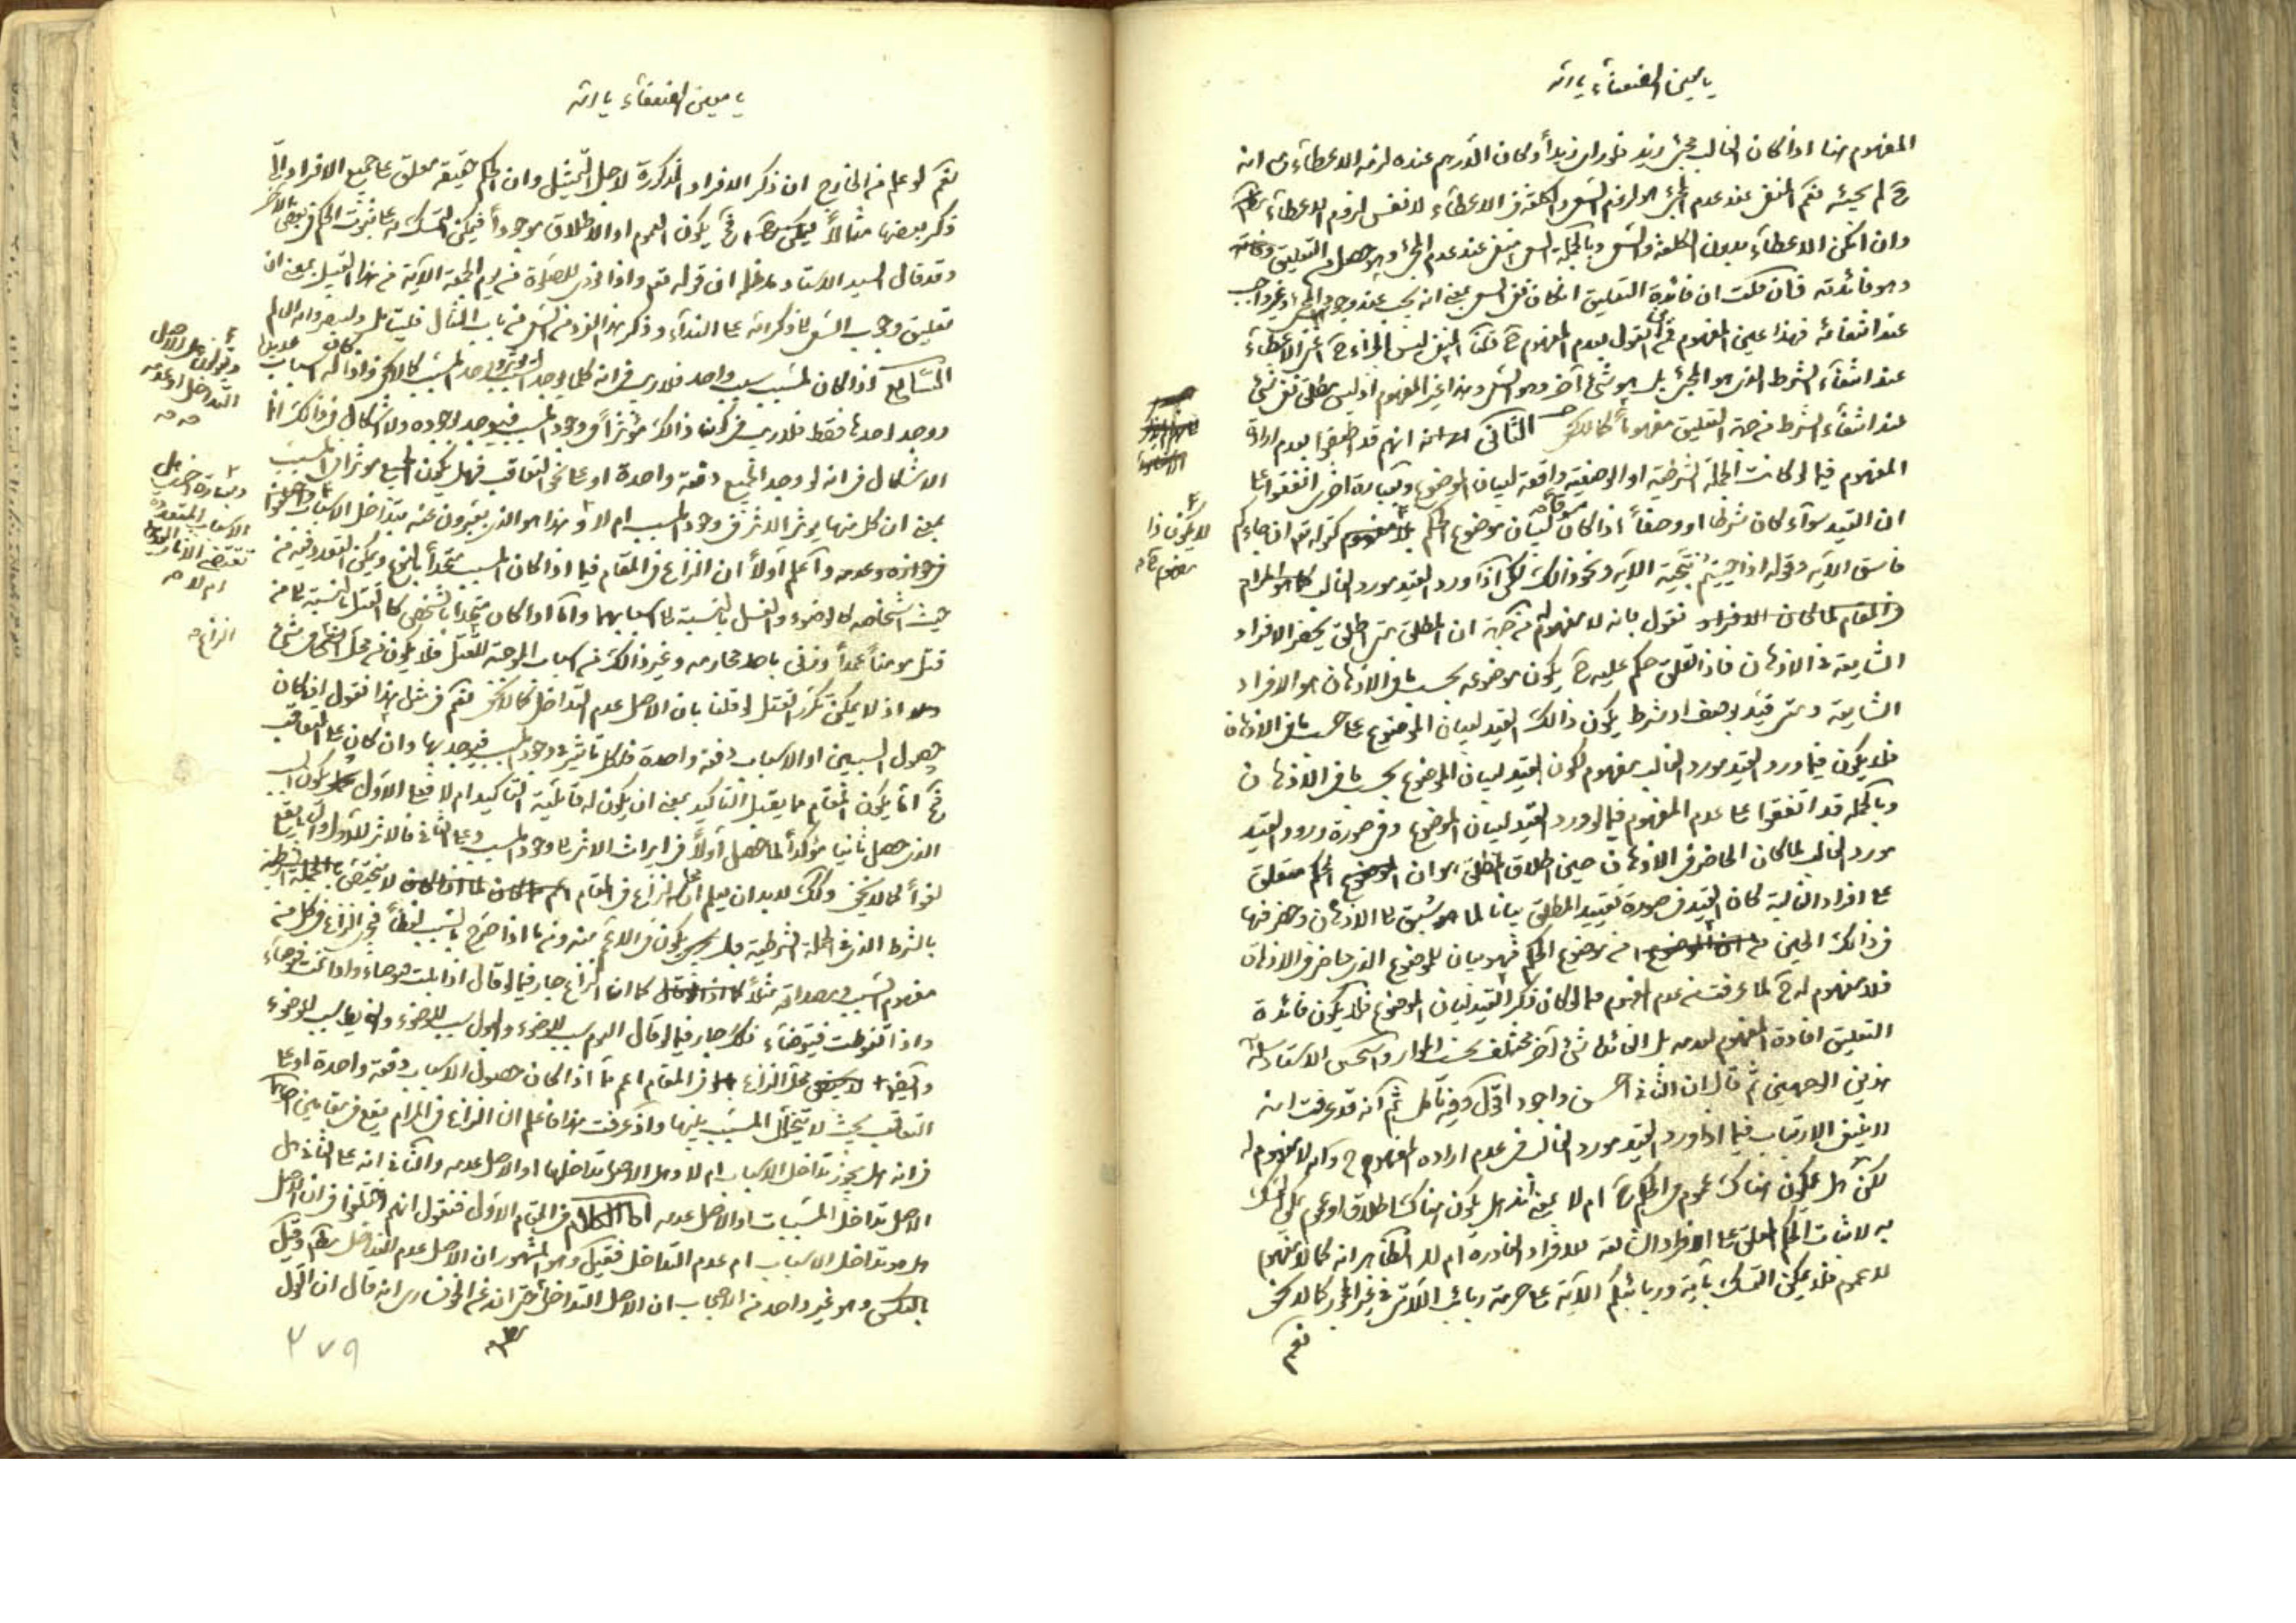 يا معين الضعفاء يا الله
المفهوم هنا اذا كان الغالب مجئ زيد فلو زيداً وكان الدرهم عنده لزمه الاعطاء مع انه
ح لم يجيئه نعم المنفى عند عدم المجئ هو لزوم السعى والكلفة فى الاعطاء لا نفس لزوم الاعطاء
وان امكن الاعطاء بدون الكلفة والسعى وبالجملة السعى منتف عند عدم المجئ وهو التعليق
وهو فائدته فان قلت ان فائدة التعليق اذا كان نفى السعى بمعنى انه يجب عند وجود المجئ وغير واجب
عند انتفائه فهذا عين المفهوم فما القول بعدم المفهوم ح قلنا المنفى ليس الجزاء ح اعنى الاعطاء
عند انتفاء الشرط الذى هو المجئ بل هو شئ آخر وهو السعى وهذا غير المفهوم اذ ليس مطلق نفى شئ
عند انتفاء الشرط من جهة التعليق مفهوماً كما لا يخفى الثانى انهم قد اتفقوا بعدم ارادة
المفهوم فيما لو كانت الجملة الشرطية او الوصفية واقعة لبيان الموضوع وبعبارة اخرى اتفقوا على
ان القيد سوآء كان شرطا او وصفاً اذا كان لبيان موضوع الحكم كقوله تعم ان جاءكم
فاسق الآية وقوله اذا حييتم بتحية الآية ونحو ذالك لكن اذا ورد القيد مورد الغالب كما هو المرام
فى المقام نقول بانه لا مفهوم له من جهة ان المطلق متى اطلق يحضر الافراد
الشايعة فى الاذهان فاذا تعلق حكم عليه ح يكون موضوعه بحسب ما فى الاذهان هو الافراد
الشايعة ومتى قيد بوصف او شرط يكون ذالك القيد لبيان الموضوع على حسب ما فى الاذهان
فلا يكون فيما ورد القيد مورد الغالب مفهوم لكون القيد لبيان الموضوع بحسب ما فى الاذهان
وبالجملة قد اتفقوا على عدم المفهوم فيما لو ورد القيد لبيان الموضوع وفى صورة ورود القيد
مورد الغالب لما كان الحاضر فى الاذهان حين اطلاق المطلق هو ان الحكم متعلق
على افراد الغالبة كان القيد فى صورة تقييد المطلق بيانا لما هو سبق الى الاذهان وحضر فيها
فى ذالك الحين من موضوع الحكم فهو بيان للموضوع الذى حاضر فى الاذهان
فلا مفهوم له ح لما عرفت من عدم المفهوم فيما لو كان ذكر القيد لبيان الموضوع فلا يكون فائدة
التعليق افادة المفهوم لعدمه بل الفائدة شئ آخر مختلف بحسب الموارد واستحسن الاستاد
هذين الوجهين ثم قال ان الثانى احسن واجود اقول وفيه تأمل ثم انه قد عرفت انه
لا ينبغى الارتياب فيما اذا ورد القيد مورد الغالب فى عدم ارادة المفهوم ح وانه لا مفهوم له
لكن هل يكون هناك عموم فى الحكم ح ام لا بمعنى انه هل يكون هناك اطلاق او عموم يمكن التمسك
به لاثبات الحكم المعلق على الافراد الشائعة للافراد النادرة ام لا الظاهر انه كما لا مفهوم
لا عموم فلا يمكن التمسك بآية وربائبكم الآية على حرمة ربائب اللاتى فى غير الحجور كما لا يخفى
نعم
لا يكون ذا
مفهوم
يا معين الضعفاء يا الله
نعم لو علم من الخارج ان ذكر الافراد المذكورة لاجل التمثيل وان الحكم حقيقة معلق على جميع الافراد الا
ذكر بعضها مثالاً فح يكون العموم او الاطلاق موجوداً فيمكن التمسك به على ثبوت الحكم فى بعض الآخر
وقد قال السيد الاستاد مدظله ان قوله تعم واذا نودى للصلوة من يوم الجمعة الآية من هذا القبيل بمعنى ان
تعليق وجوب السعى لذكر الله على النداء وذكر هذا الفرد من السعى من باب المثال فليتامل وليتبصر والله العالم
السابع اذا كان لمسبب سبب واحد فلا ريب فى انه كلما يوجد السبب يوجد المسبب كما لا يخفى واذا كان له اسباب عديدة
ووجد احدها فقط فلا ريب فى كون ذالك مؤثراً فى وجود المسبب فيوجد بوجوده ولا اشكال فى ذالك انما
الاشكال فى انه لو وجد الجميع دفعة واحدة او على نحو التعاقب فهل يكون الجميع موثراً فى المسبب
بمعنى ان كل منها يوثر الاثر فى وجود المسبب ام لا وهذا هو الذى يعبرون عنه بتداخل الاسباب واختلفوا
فى جوازه وعدمه واعلم اولاً ان النزاع فى المقام فيما اذا كان المسبب متحداً بالنوع ويمكن التعدد فيه من
حيث اشخاصه كالوضوء والغسل بالنسبة الى اسبابهما واما اذا كان متحداً بالشخص كالقتل بالنسبة الى من
قتل مومناً عمداً وزنى باحد محارمه وغير ذالك من اسباب الموجبة للقتل فلا يكون من محل النزاع فى شئ
اذ لا يمكن تكرر القتل لو قلنا بان الاصل عدم التداخل كما لا يخفى نعم فى مثل هذا نقول ان كان
حصول السببين او الاسباب دفعة واحدة فلكل تاثير فى وجود المسبب فيوجد بها وان كان على التعاقب
فح اما يكون المقام مما يقبل التاكيد بمعنى ان يكون له قابلية التاكيد ام لا فعلى الاول يكون السبب
الذى حصل ثانيا مؤكداً لما حصل اولاً فى ايراث الاثر فى وجود المسبب وعلى الثانى فالاثر للاول والثانى يقع
لغواً كما لا يخفى وكك لا بد ان يعلم ان محل النزاع فى المقام لا يختص بالجملة الشرطية
بالشرط الذى فى الجملة الشرطية بل يكون فى الاعم منه ومما اذا صرح بالسبب لفظاً فيجرى النزاع فى كل من
مفهوم السبب ومصداقه مثلاً كما ان النزاع جار فيما لو قال اذا بلت توضأ واذا نمت توضأ
واذا تغوطت فتوضأ كك جار فيما لو قال النوم سبب للوضوء والبول سبب للوضوء والغايط سبب للوضوء
وايضا محل النزاع فى المقام اعم مما اذا كان حصول الاسباب دفعة واحدة او على
التعاقب بحيث لا يتخلل المسبب بينها واذا عرفت هذا فاعلم ان النزاع فى المرام يقع فى مقامين احدهما
فى انه هل يجوز تداخل الاسباب ام لا وهل الاصل تداخلها او الاصل عدمه والثانى انه على الثانى هل
الاصل تداخل المسببات او الاصل عدمه اما الكلام فى المقام الاول فنقول انهم اختلفوا فى ان الاصل
هل هو تداخل الاسباب ام عدم التداخل فقيل وهو المشهور ان الاصل عدم التداخل وقيل
بالعكس وهو غير واحد من الاصحاب ان الاصل التداخل حتى انه عن الخونسارى انه قال ان القول
ويقولون هل الاصل
التداخل او عدمه
وبعبارة اخرى هل
الاسباب المتعددة
تقتضى الآثار المتعددة
ام لا
النزاع
٢٧٩